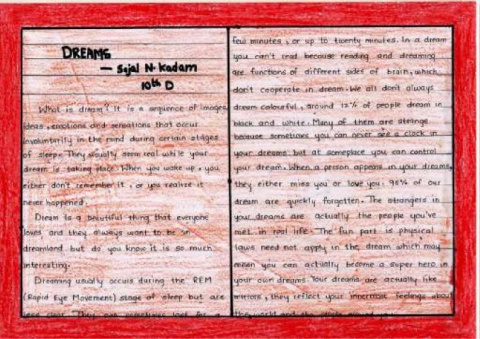 DREAMS
— Sejal N. Kadam
10th D
What is dream? It is a sequence of images,
ideas, emotions and sensations that occur
involuntarily in the mind during certain stages
of sleep. They usually seem real while your
dream is taking place. When you wake up, you
either don't remember it, or you realize it
never happened.
Dream is a beautiful thing that everyone
loves and they always want to be in
dreamland but do you know it is so much
interesting.
Dreaming usually occurs during the REM
(Rapid Eye Movement) stage of sleep but are
less clear. They can sometimes last for a
few minutes, or up to twenty minutes. In a dream
you can't read because reading and dreaming
are functions of different sides of brain, which
don't cooperate in dream. We all don't always
dream colourful, around 12% of people dream in
black and white. Many of them are strange
because sometimes you can never see a clock in
your dreams but at someplace you can control
your dream. When a person appears in your dreams,
they either miss you or love you. 96% of our
dream are quickly forgotten. The strangers in
your dreams are actually the people you've
met in real life. The fun part is physical
laws need not apply in the dream which may
mean you can actually become a super hero in
your own dreams. Your dreams are actually like
mirrors, they reflect your innermost feelings about
the world and the people around you.